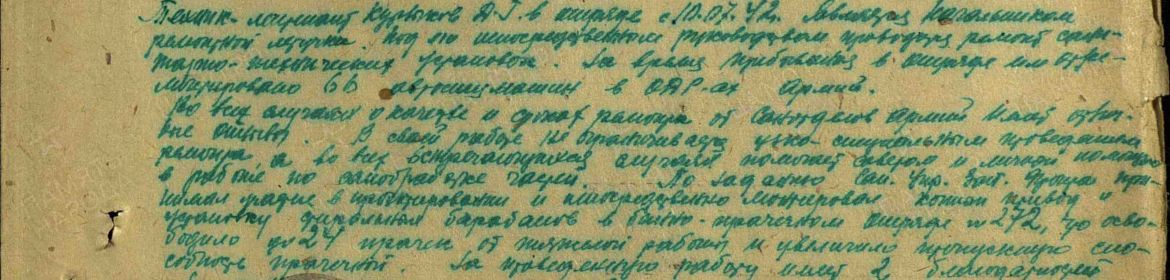 Техник-лейтенант Курыков А.Г. в отряде с 10.07.42. Являясь Начальником
ремонтной летучки. Под его непосредственном руководством проводился ремонт сани-
тарно-технических установок. За время пребывания в отряде им отре-
монтировано 66 автомашин в ОДР-ах Армий.
Во всех случаях о качестве и сроках ремонта от Санотделов армий имел отлич-
ные отзывы. В своей работе не ограничивался узко-специальным проведением
ремонта, а во всех встречающихся случаях помогает советом и личной помощью
в работе по санобработке частей. По заданию Сан. Упр. Зап. Фронта при-
нимал участие в проектировании и непосредственно монтировал конной привод и
установку стиральных барабанов в банно-прачечном отряде №272, что осво-
бодило до 24 прачек от тяжелой работы и увеличило пропускную спо-
собность прачечной. За проведенную работу имеет 2 благодарности